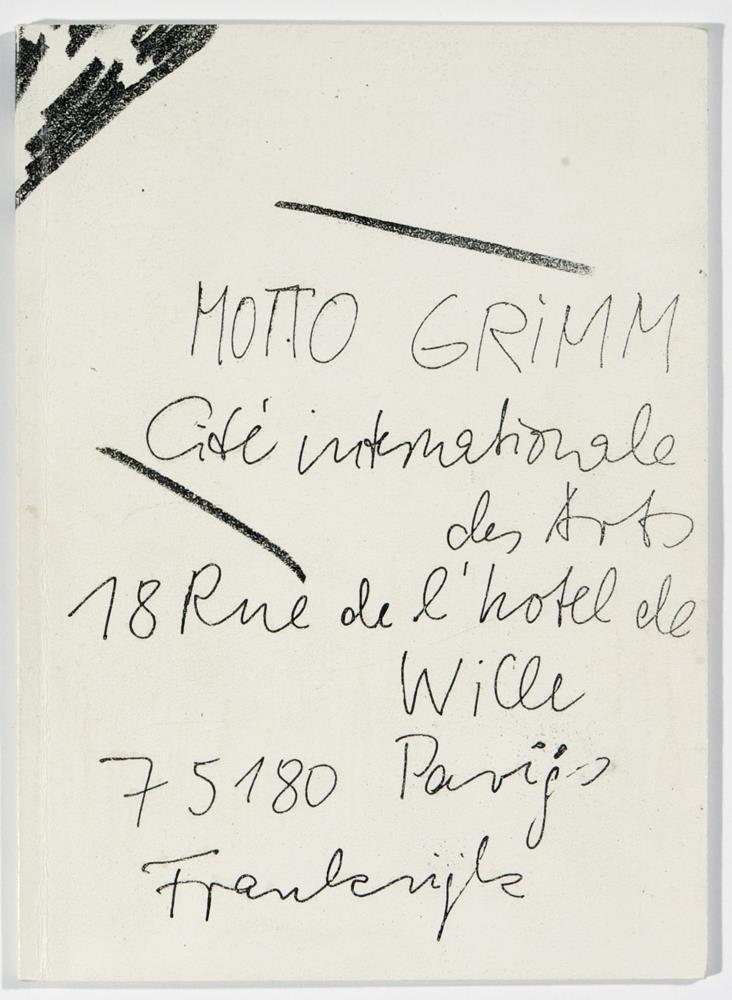 MOTTO GRiMM
Cité internationale
des Arts
18 Rue de l'hotel de
Wille
75180 Parijs
Frankrijk